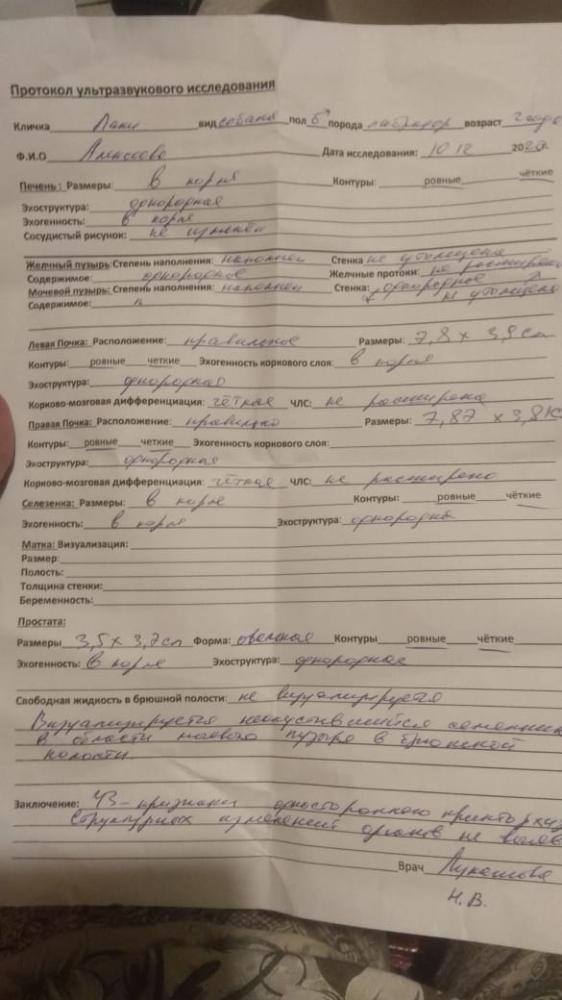 Протокол ультразвукового исследования
Кличка Лаки вид собака пол ♂ порода лабрадор возраст 2 года
Ф.И.О Дата исследования: 10.12 2020
Печень: Размеры: в норме Контуры: ровные четкие
Эхоструктура: однородная
Эхогенность: в норме
Сосудистый рисунок: не изменён
Желчный пузырь: Степень наполнения: наполнен Стенка не утолщена
Содержимое: однородное Желчные протоки: не расширены
Мочевой пузырь: Степень наполнения: наполнен Стенка: однородное не утолщена
Содержимое:
Левая Почка: Расположение: правильное Размеры: 7,8 х 3,9 см
Контуры: ровные четкие Эхогенность коркового слоя: в норме
Эхоструктура: однородная
Корково-мозговая дифференциация: чёткая ЧЛС: не расширена
Правая Почка: Расположение: правильно Размеры: 7,87 х 3,8
Контуры: ровные четкие Эхогенность коркового слоя:
Эхоструктура: однородная
Корково-мозговая дифференциация: чёткая ЧЛС: не расширено
Селезенка: Размеры: в норме Контуры: ровные чёткие
Эхогенность: в норме Эхоструктура: однородна
Матка: Визуализация:
Размер:
Полость:
Толщина стенки:
Беременность:
Простата:
Размеры 3,5 х 3,7 см Форма: овальная Контуры ровные чёткие
Эхогенность: в норме Эхоструктура: однородная
Свободная жидкость в брюшной полости: не визуализируется
Визуализируется неопустившийся семенник
в области мочевого пузыря в брюшной
полости.
Заключение: УЗ-признаки одностороннего крипторхиз
Структурных изменений органов не выяв
Врач Лукашова
Н.В.